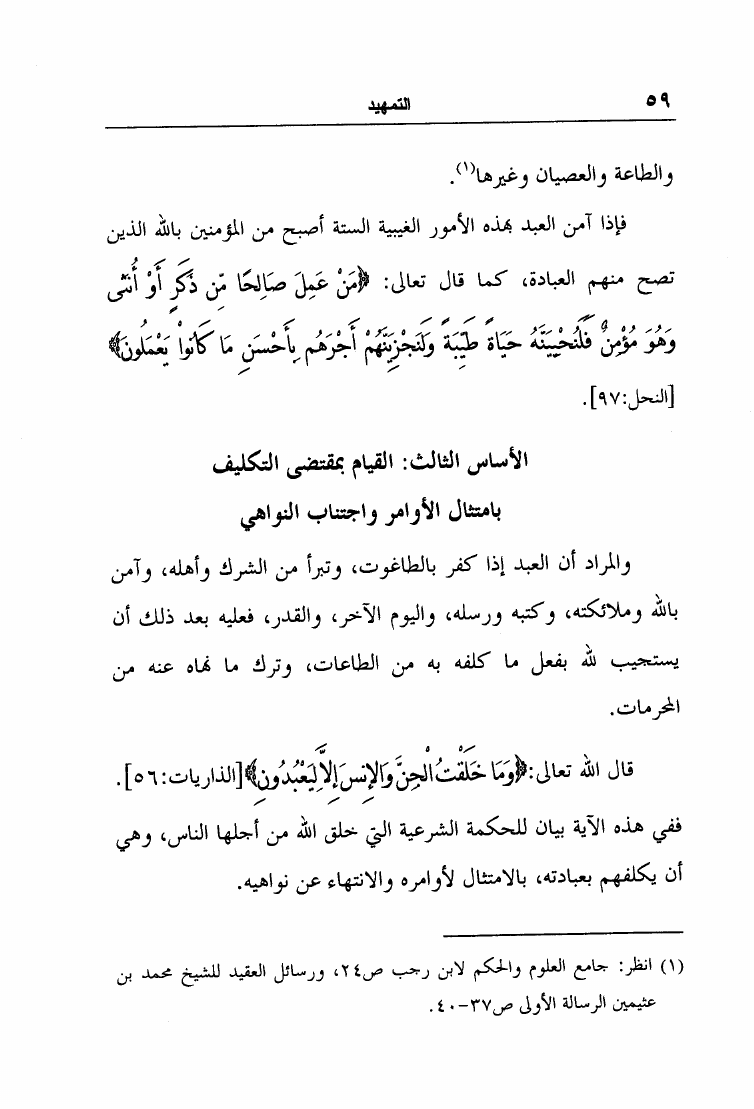 التمهيد ٥٩
والطاعة والعصيان وغيرها(١).
فإذا آمن العبد بهذه الأمور الغيبية الستة أصبح من المؤمنين بالله الذين
تصح منهم العبادة، كما قال تعالى: ﴿مَنْ عَمِلَ صَالِحًا مِّن ذَكَرٍ أَوْ أُنثَى
وَهُوَ مُؤْمِنٌ فَلَنُحْيِيَنَّهُ حَيَاةً طَيِّبَةً وَلَنَجْزِيَنَّهُمْ أَجْرَهُم بِأَحْسَنِ مَا كَانُواْ يَعْمَلُونَ﴾
[النحل:٩٧].
الأساس الثالث: القيام بمقتضى التكليف
بامتثال الأوامر واجتناب النواهي
والمراد أن العبد إذا كفر بالطاغوت، وتبرأ من الشرك وأهله، وآمن
بالله وملائكته، وكتبه ورسله، واليوم الآخر، والقدر، فعليه بعد ذلك أن
يستجيب لله بفعل ما كلفه به من الطاعات، وترك ما نهاه عنه من
المحرمات.
قال الله تعالى:﴿وَمَا خَلَقْتُ الْجِنَّ وَالإِنسَ إِلاَّ لِيَعْبُدُونِ﴾[الذاريات:٥٦].
ففي هذه الآية بيان للحكمة الشرعية التي خلق الله من أجلها الناس، وهي
أن يكلفهم بعبادته، بالامتثال لأوامره والانتهاء عن نواهيه.
(١) انظر: جامع العلوم والحكم لابن رجب ص٢٤، ورسائل العقيد للشيخ محمد بن
عثيمين الرسالة الأولى ص٣٧-٤٠.